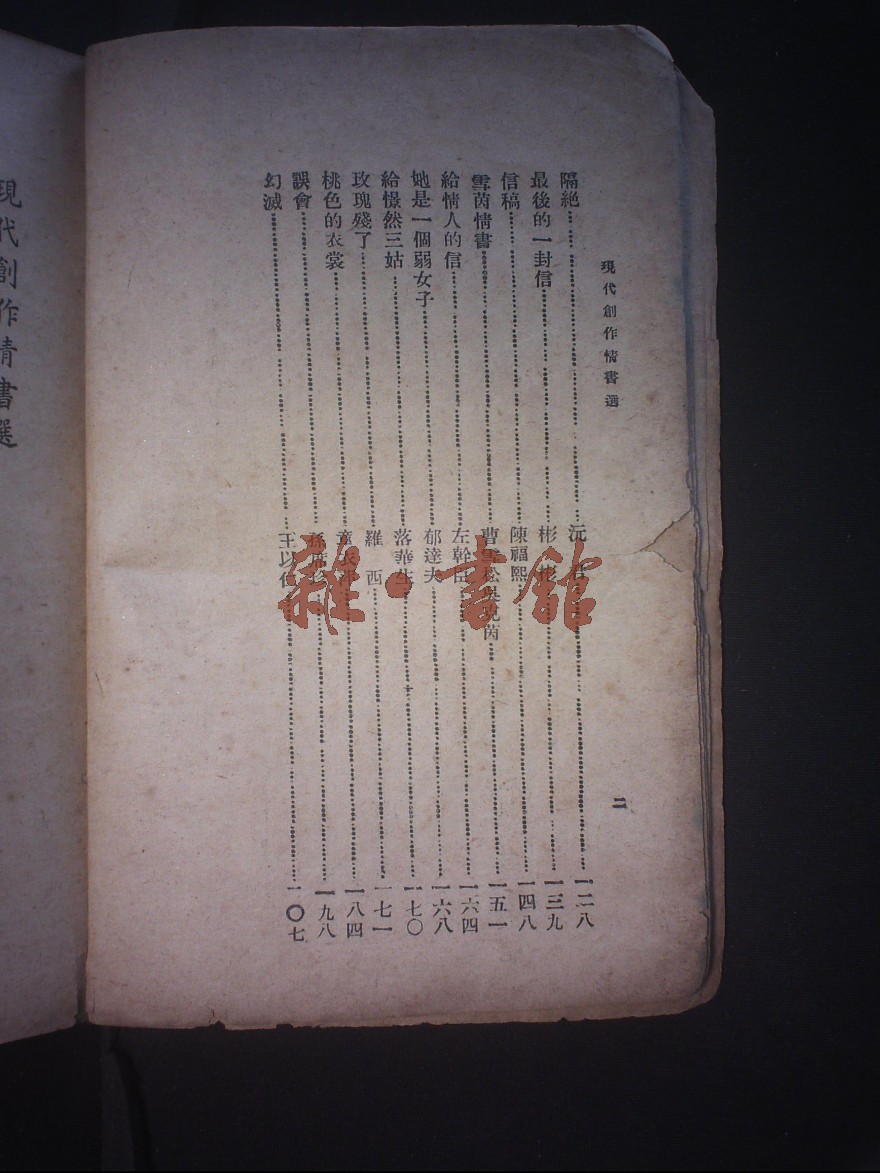 現代創作情書選
二
隔絕……沅君……一二八
最後的一封信……彬彬……一三九
信稿……陳福熙……一四八
雪茵情書……曹雪松吳 茵……一五一
給情人的信……左幹臣……一六四
她是一個弱女子……郁達夫……一六八
給憬然三姑……落華生……一七〇
玫瑰殘了……羅西……一七一
桃色的衣裳……章衣……一八四
誤會……孫席珍……一九八
幻滅……王以仁……一〇七
現代創作情書選
雜·書館